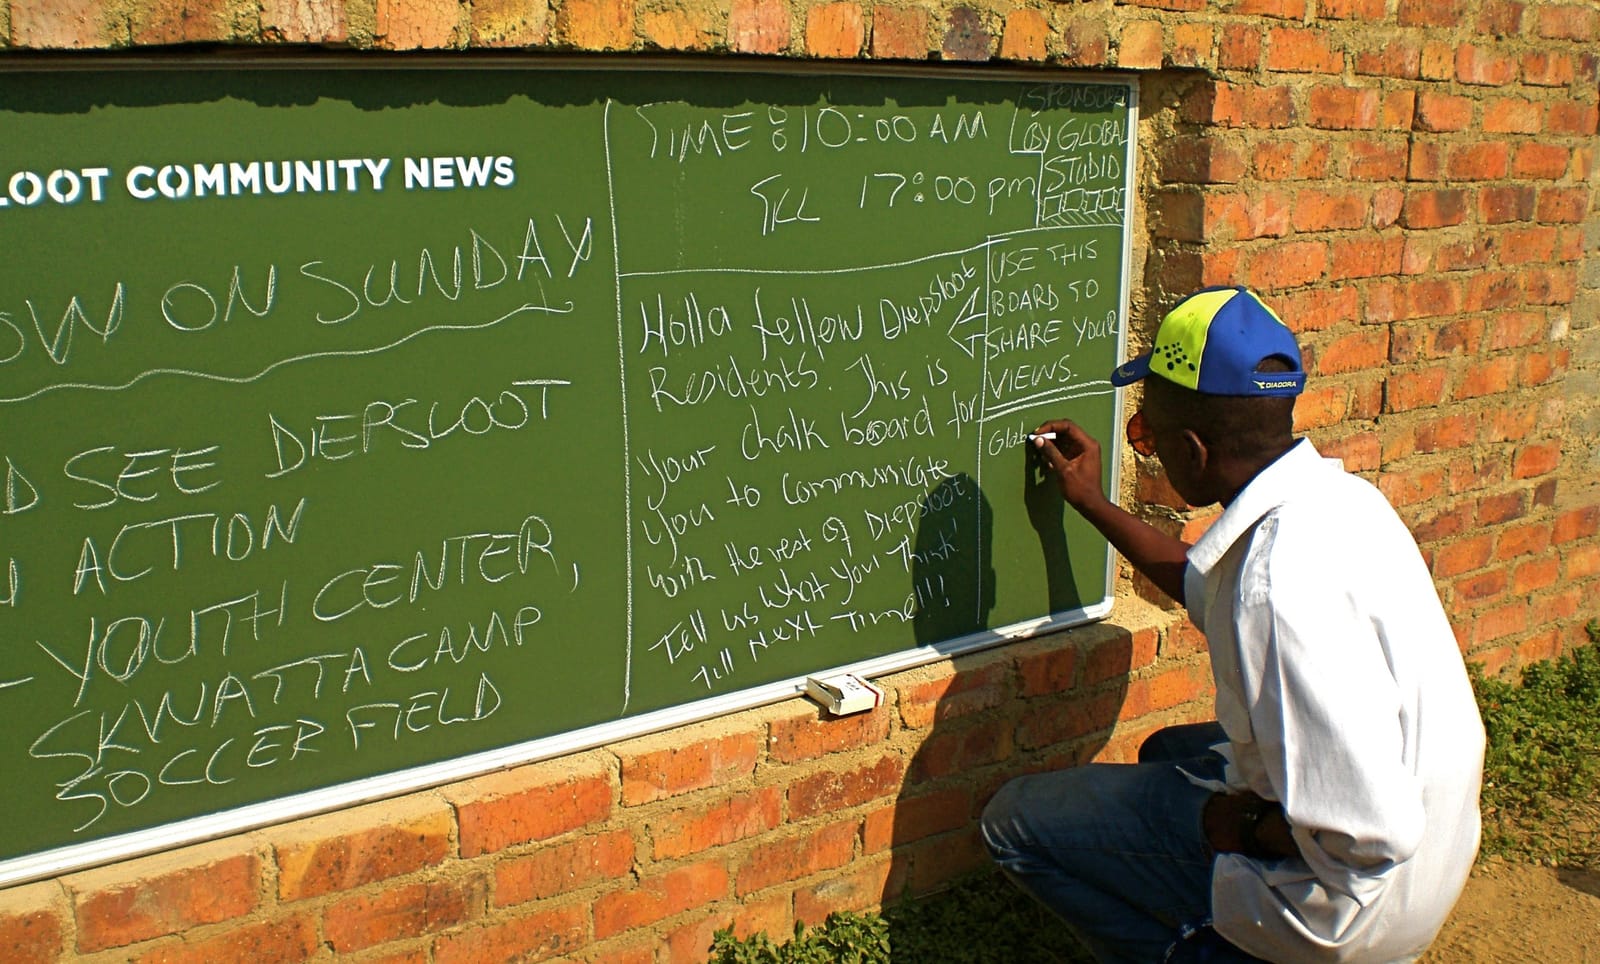 LOOT COMMUNITY NEWS
OW ON SUNDAY
D SEE DIEPSLOOT
ACTION
- YOUTH CENTER,
SKWATTA CAMP
SOCCER FIELD
TIME : 10:00 AM
TILL 17:00 pm
SPONSORED
BY GLOBAL
STUDIO
Holla fellow Diepsloot
Residents. This is
your chalk board for
you to communicate
with the rest of Diepsloot.
Tell us what you think!
Till Next Time!!!
USE THIS
BOARD TO
SHARE YOUR
VIEWS.
Glob
DIADORA